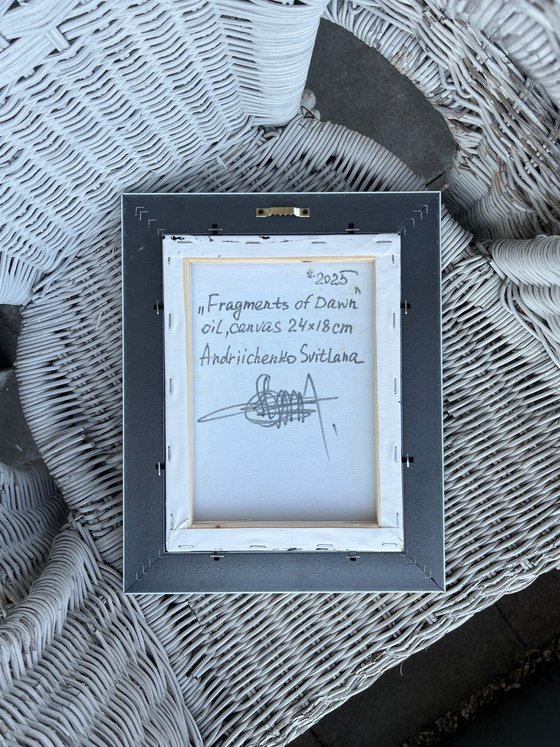 2025
„Fragments of Dawn"
oil, canvas 24x18cm
Andriichenko Svitlana